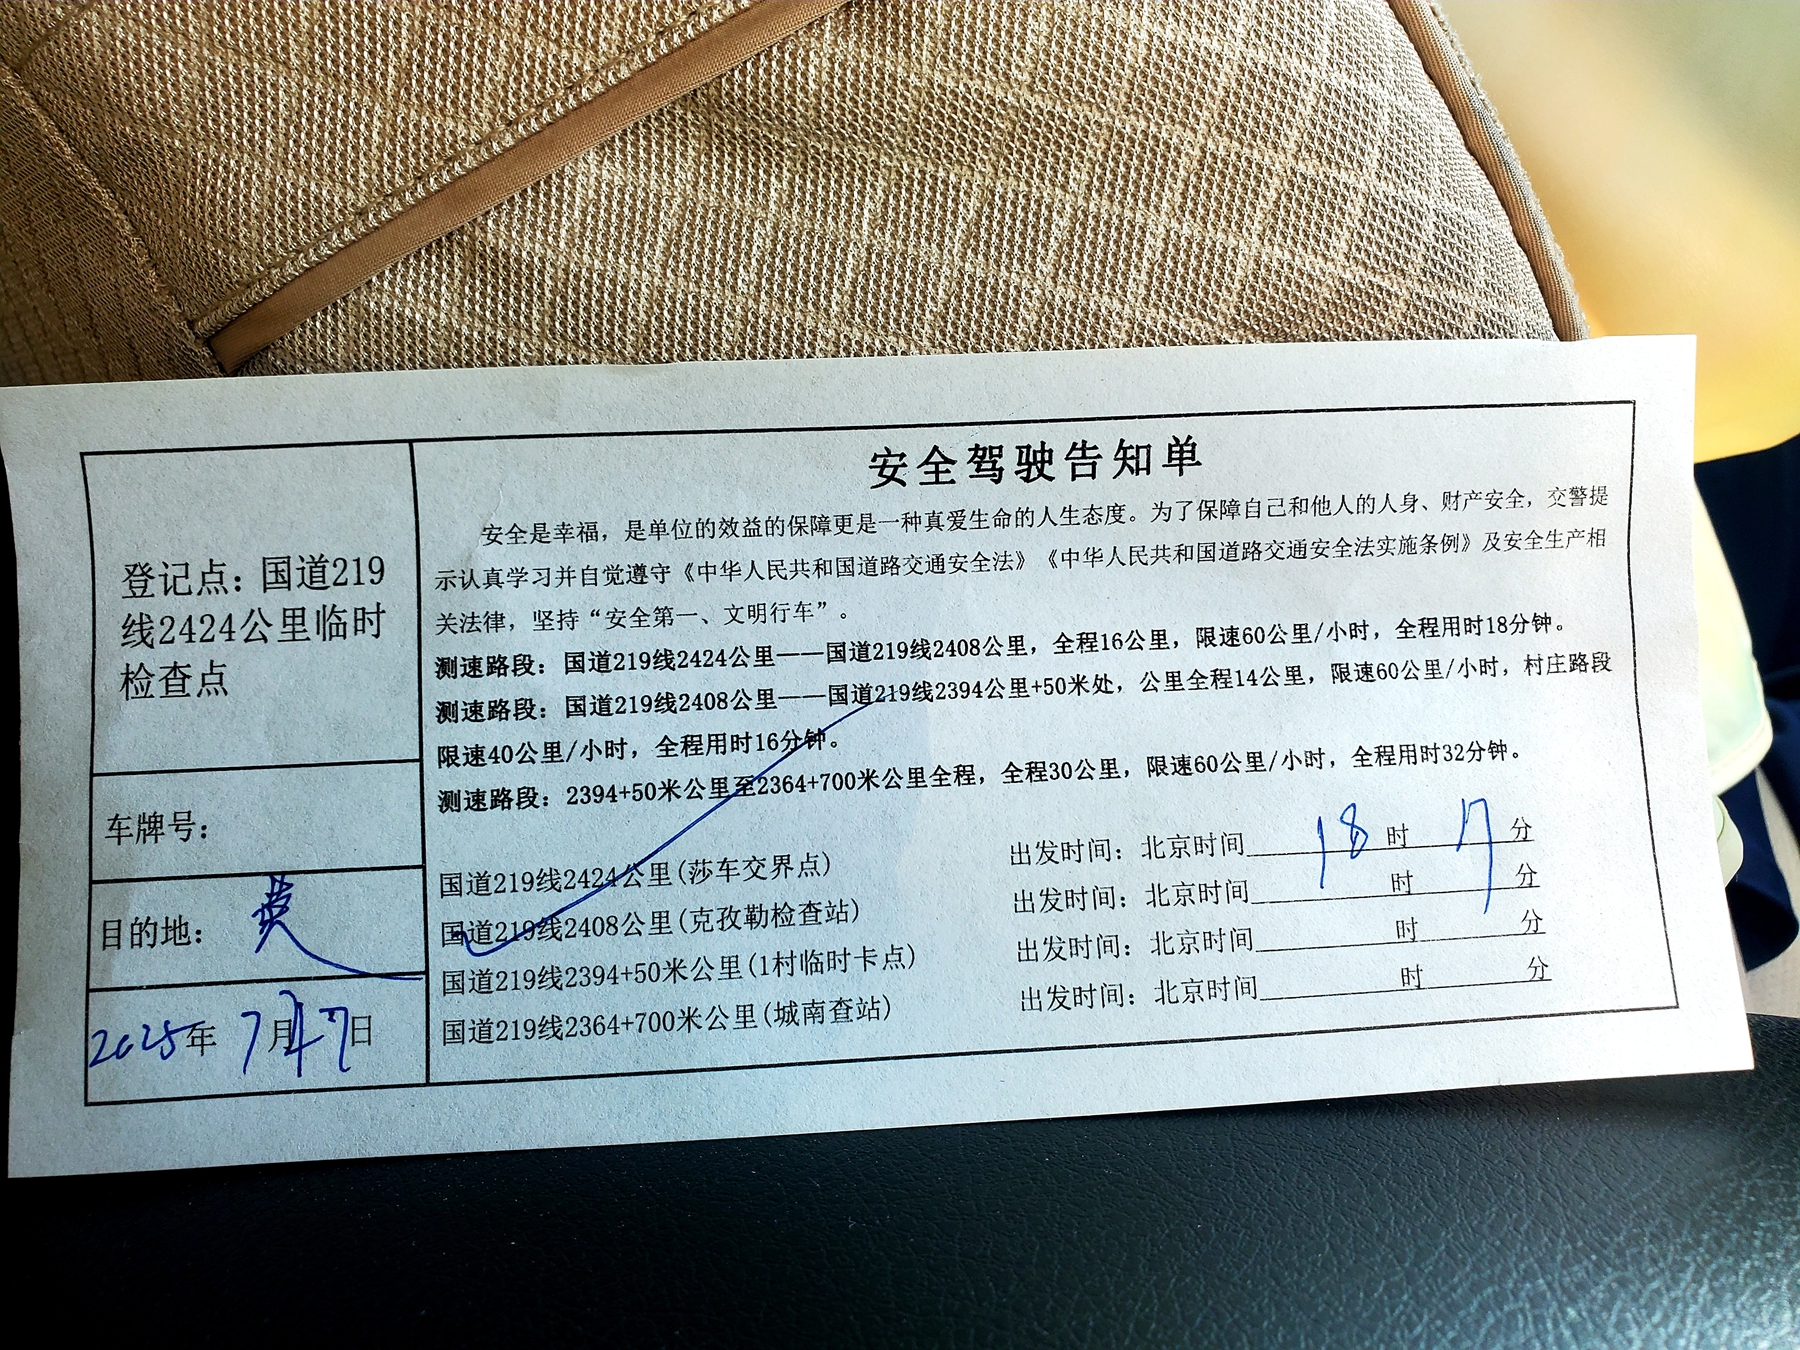 安全驾驶告知单
登记点：国道219
线2424公里临时
检查点
车牌号：
目的地：
2025年 7月 日
安全是幸福，是单位的效益的保障更是一种真爱生命的人生态度。为了保障自己和他人的人身、财产安全，交警提
示认真学习并自觉遵守《中华人民共和国道路交通安全法》《中华人民共和国道路交通安全法实施条例》及安全生产相
关法律，坚持“安全第一、文明行车”。
测速路段：国道219线2424公里——国道219线2408公里，全程16公里，限速60公里/小时，全程用时18分钟。
测速路段：国道219线2408公里——国道219线2394公里+50米处，公里全程14公里，限速60公里/小时，村庄路段
限速40公里/小时，全程用时16分钟。
测速路段：2394+50米公里至2364+700米公里全程，全程30公里，限速60公里/小时，全程用时32分钟。
国道219线2424公里(莎车交界点) 出发时间：北京时间 18 时 17 分
国道219线2408公里(克孜勒检查站) 出发时间：北京时间 时 分
国道219线2394+50米公里(1村临时卡点) 出发时间：北京时间 时 分
国道219线2364+700米公里(城南查站) 出发时间：北京时间 时 分